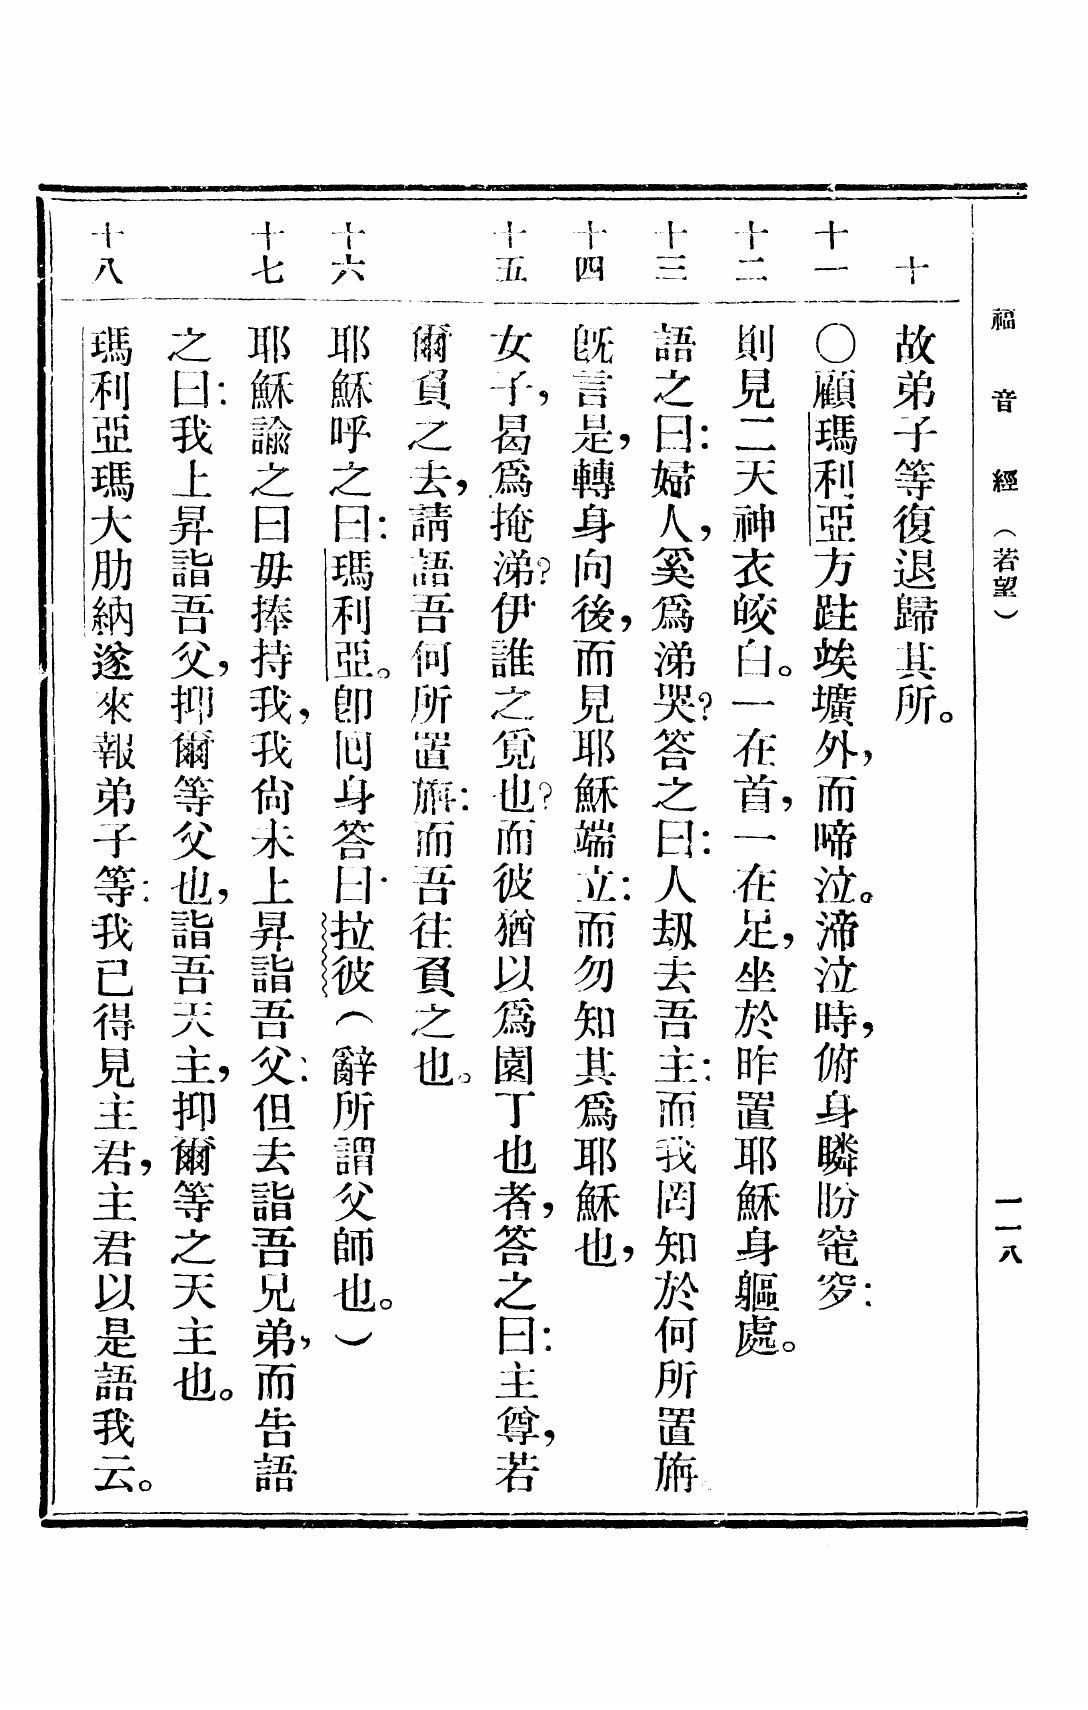 福音經（若望）
一一八
十
故弟子等復退歸其所。
十一
〇顧瑪利亞方跓竢壙外，而啼泣。渧泣時，俯身瞵盼窀穸：
十二
則見二天神衣皎白。一在首，一在足，坐於昨置耶穌身軀處。
十三
語之曰：婦人，奚爲涕哭？答之曰：人刼去吾主：而我罔知於何所置旃
十四
旣言是，轉身向後，而見耶穌端立：而勿知其爲耶穌也，
十五
女子，曷爲掩涕？伊誰之覓也？而彼猶以爲園丁也者，答之曰：主尊，若
爾負之去，請語吾何所置旃：而吾往負之也。
十六
耶穌呼之曰：瑪利亞。卽囘身答曰·拉彼（辭所謂父師也。）
十七
耶穌諭之曰毋捧持我，我尙未上昇詣吾父：但去詣吾兄弟，而告語
之曰：我上昇詣吾父，抑爾等父也，詣吾天主，抑爾等之天主也。
十八
瑪利亞瑪大肋納遂來報弟子等：我已得見主君，主君以是語我云。